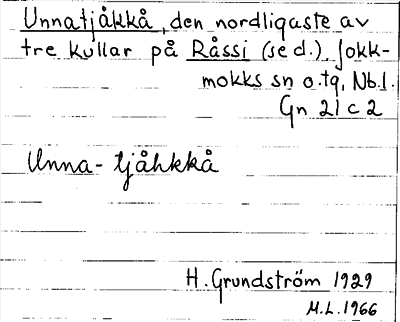 Unnatjåkkå, den nordligaste av
tre kullar på Råssi (se d.), Jokk-
mokks sn o. tg, Nb.l.
Gn 21 c 2
Unna-tjåhkkå
H. Grundström 1929
M.L. 1966